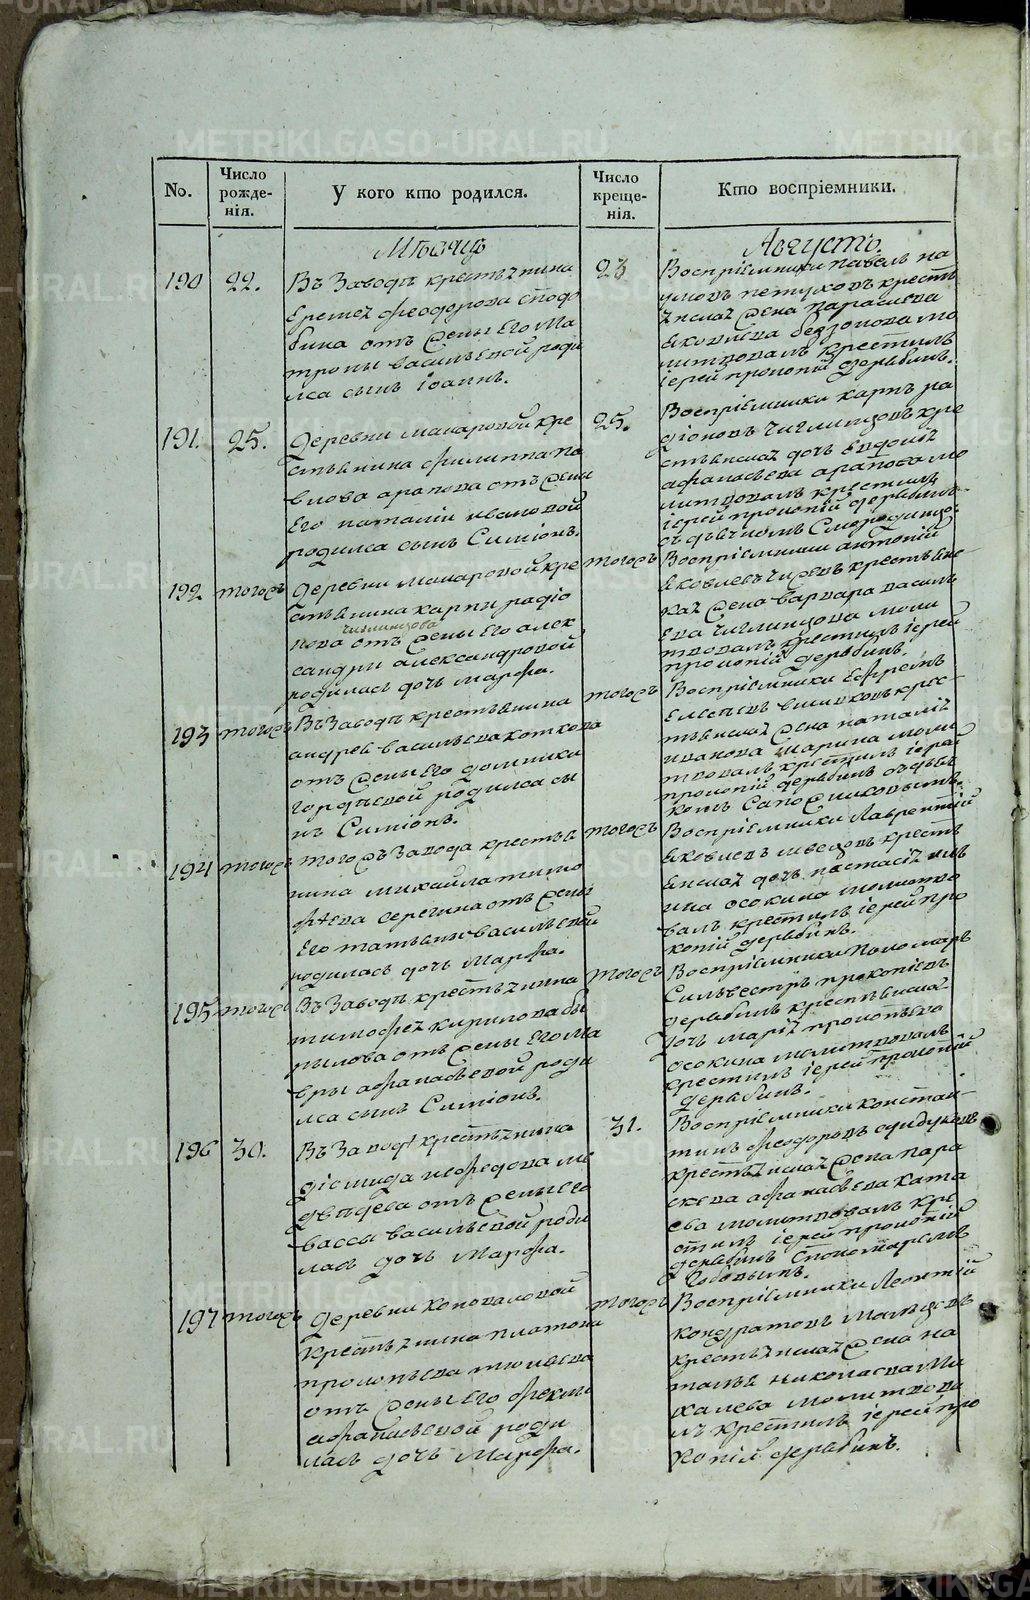 METRIKI.GASO-URAL.RU
No.
Число рожде-нія.
У кого кто родился.
Число креще-нія.
Кто воспріемники.
Мѣсяцъ
Августъ.
190
22.
Въ Заводѣ крестьянина
Еремея Феодорова
отъ жены Его Ма
троны Васильевой роди
лса сынъ Іоаннъ.
23
Воспріемники Павелъ На
умовъ Петуховъ крестья
янская жена Параскева
Яковлева
литвовалъ крестилъ
іерей Прокопій Дерябинъ.
191.
25.
Деревни Макаровой кре
стьянина Филиппа Па
влова Арапова отъ жены
Его Наталіи Ивановой
родился сынъ Симіонъ.
25.
Воспріемники Карпъ Ра
діоновъ Чиглинцовъ кре
стьянская дочь Евдокія
Афанасьева Арапова мо
литвовалъ крестилъ
іерей Прокопій Дерябинъ
192
тогожъ
Деревни Макаровой кре
стьянина Карпа Радіо
нова отъ жены Его Алек
Чиглинцова
сандры Александровой
родилась дочь Марфа.
тогожъ
Воспріемники Антоній
Яковлевъ крестьянс
кая жена Варвара Василь
ева Чиглинцова моли
твовалъ крестилъ іерей
Прокопій Дерябинъ.
193
тогожъ
Въ Заводѣ крестьянина
Андрея Васильева Коткова
отъ жены Его Домники
Гордѣевой родился сы
нъ Симіонъ.
тогожъ
Воспріемники Ефремъ
Елесѣевъ крес-
тьянская жена Наталія
Иванова моли
твовалъ крестилъ іерей
Прокопій Дерябинъ съ дьяч
комъ Сапожниковымъ.
194
тогожъ
Тогожъ Завода крестья
нина Михайла Тимо
фѣева Серегина отъ жены
Его Татьяны Васильевой
родилась дочь Марфа.
тогожъ
Воспріемники Лаврентій
Яковлевъ Шведовъ крестья
янская дочь Настасія
ина Осокина молитво
валъ крестилъ іерей Про
копій Дерябинъ.
195
тогожъ
Въ Заводѣ крестьянина
Тимофея Кирилова
отъ жены Его Ма
вры Афанасьевой роди
лса сынъ Симіонъ.
тогожъ
Воспріемники Пономарь
Сильвестръ Прокопіевъ
Дерябинъ крестьянская
дочь Марія Прокопьева
Осокина молитвовалъ
крестилъ іерей Прокопій
Дерябинъ.
196
30.
Въ Заводѣ крестьянина
Діомида Нефедова Ме
двѣдева отъ жены Его
Вассы Васильевой роди
лась дочь Марфа.
31.
Воспріемники Констан-
тинъ Феодоровъ Сундуковъ
крестьянская жена Пара
скева Афанасьева Ката
ева молитвовалъ кре
стилъ іерей Прокопій
Дерябинъ С пономаремъ
197
тогожъ
Деревни Коноваловой
крестьянина Платона
Прокопьева
отъ жены Его Феклы
Афанасьевой роди
лась дочь Марфа.
тогожъ
Воспріемники Леонтій
Кондратовъ Мальцовъ
крестьянская жена На
талья Николаева Ми
халева молитвова
лъ крестилъ іерей Про
копій Дерябинъ.